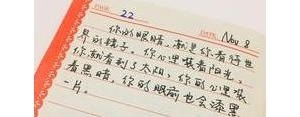 DATE 22 DATE Nov 8
你的眼睛，就是你看待世
界的镜子。你心里装着阳光，
你就看到了太阳，你的心里装
着黑暗，你的眼前也会漆黑
一片。